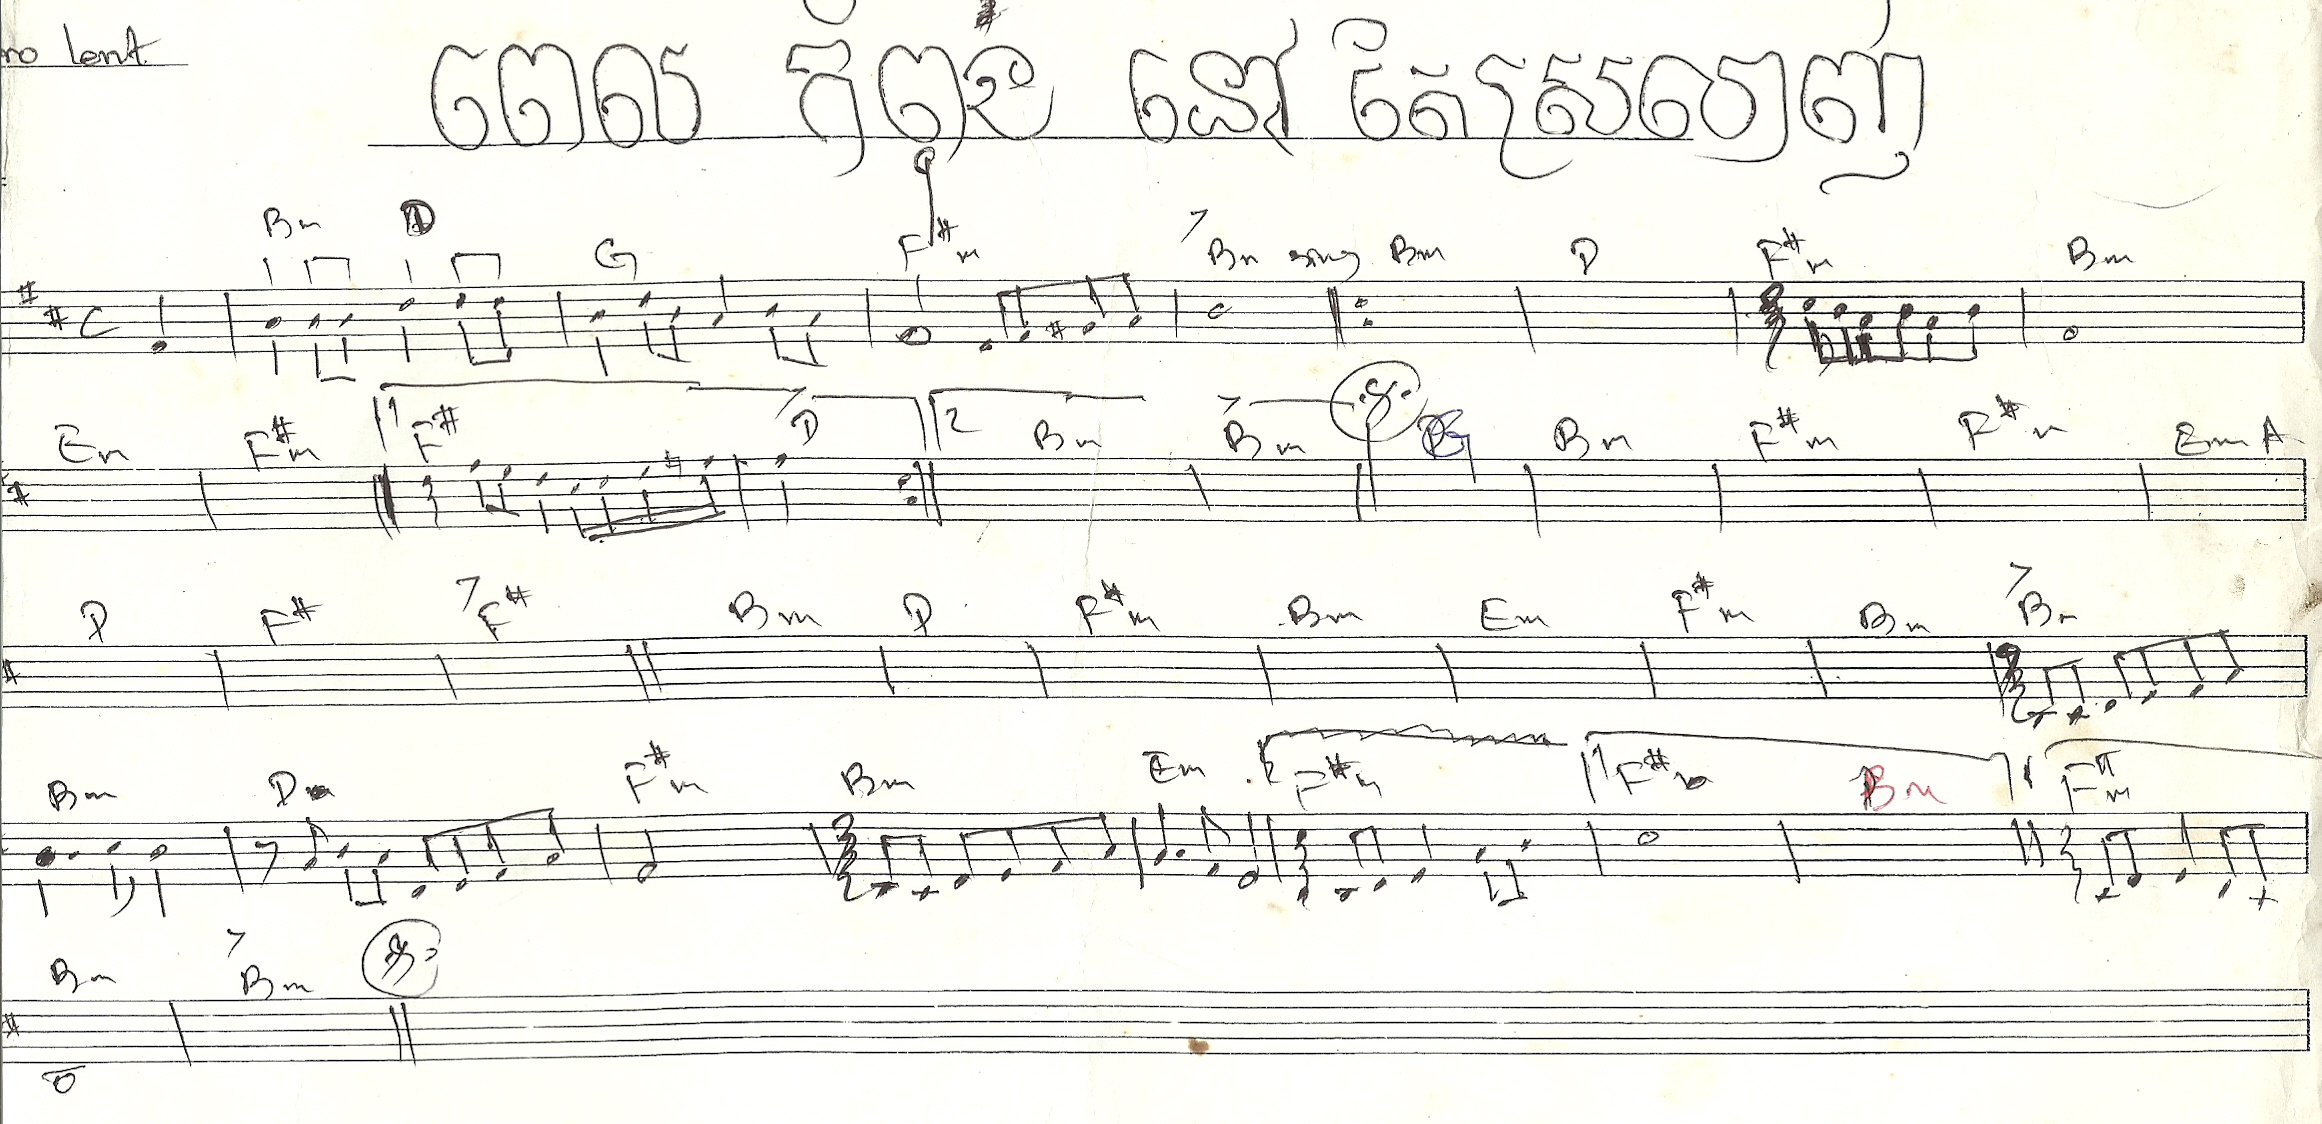 ro lent
ពេល កំពុង នៅ តែស្រលាញ់
Bm D G F#m Bm sing Bm D F#m Bm
C
Em F#m 1 F# D 2 Bm Bm G Bm F#m F#m Em A
D F# F# Bm D F#m Bm Em F#m Bm Bm
Bm D F#m Bm Em F#m 1 F#m Bm F#m
Bm Bm